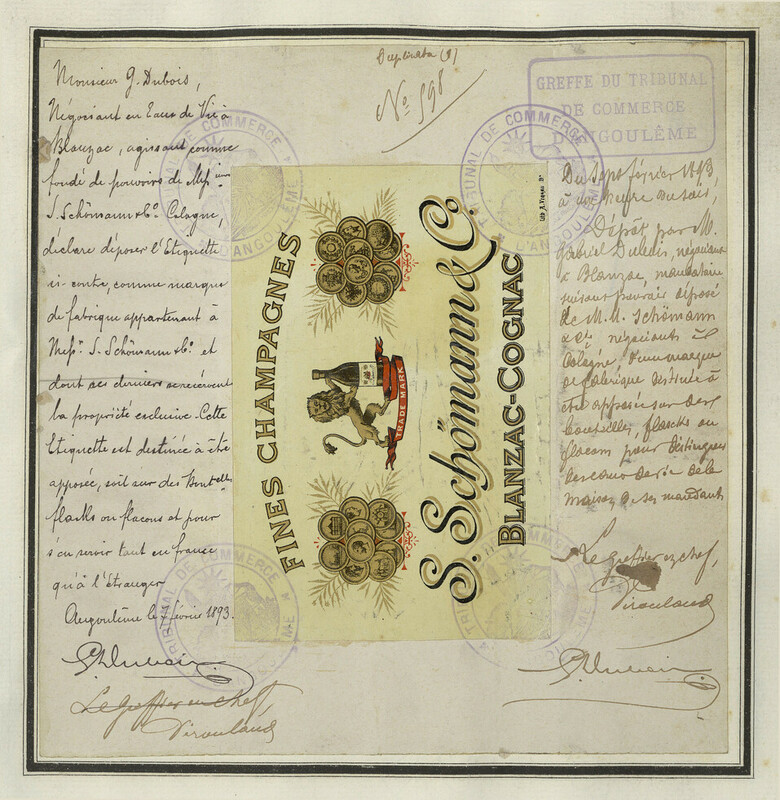 Duplicata (3)
No 598
Monsieur G. Dubois,
Négociant en Eaux de Vie à
Blanzac, agissant comme
fondé de pouvoirs de Messieurs
S. Schömann & Co. Cologne,
déclare déposer l'Etiquette
ci-contre, comme marque
de fabrique appartenant à
Messrs S. Schömann & Co. et
dont ces derniers se réservent
la propriété exclusive. Cette
Etiquette est destinée à être
apposée, soit sur des Bouteilles
flasks ou flacons et pour
s'en servir tant en france
qu'à l'étranger
Angoulême le 7 février 1893.
Le Greffier en chef,
Virouland
FINES CHAMPAGNES
TRADE MARK
S. Schömann & Co.
BLANZAC-COGNAC
GREFFE DU TRIBUNAL
DE COMMERCE
D'ANGOULÊME
Du Sept février 1893,
à une heure du soir,
Dépôt par M.
Gabriel Dubois, négociant
à Blanzac, mandataire
suivant pouvoir déposé
de M.M. Schömann
& Cie négociants à
Cologne, d'une marque
de fabrique destinée à
être apposée sur des
bouteilles, flasks ou
flacons pour distinguer
les eaux de vie de la
maison de ses mandants
Le greffier en chef,
Virouland
TRIBUNAL DE COMMERCE
D'ANGOULÊME
TRIBUNAL DE COMMERCE
D'ANGOULÊME
TRIBUNAL DE COMMERCE
TRIBUNAL DE COMMERCE